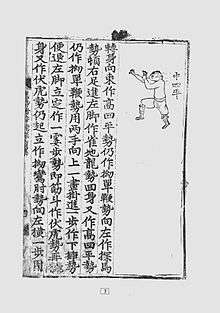 中四平
轉身向東作高四平勢仍作拗單鞭勢向左作探馬
勢領右足進左脚作雀地龍勢回身又作高四平勢
仍作拗單鞭勢用兩手向上一畫掛進一步作下揷勢
便進左脚立定作一霎步勢即筋斗作伏虎勢再
身又作伏虎勢仍起立作拗鸞肘勢向左橫一步用